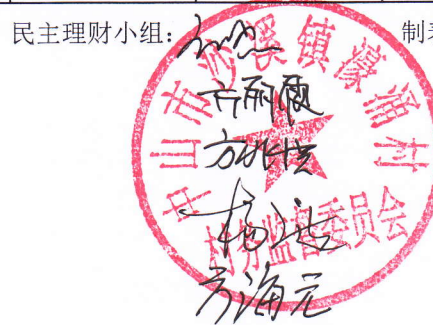 民主理财小组： 制表
中山市沙溪镇濠涌村
村务监督委员会
方丽颜
方兆洪
杨洪
方海元